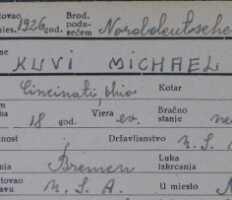 tovao Brod.
mjes. 1926 god. podu-
zećem Norddeutsche
me
KUVI MICHAEL
Cincinati, Ohio Kotar
18 god. Vjera ev. Bračno
stanje
nost Državljanstvo
Bremen Luka
izkrcanja
tovao
avu U. S. A. U mjesto